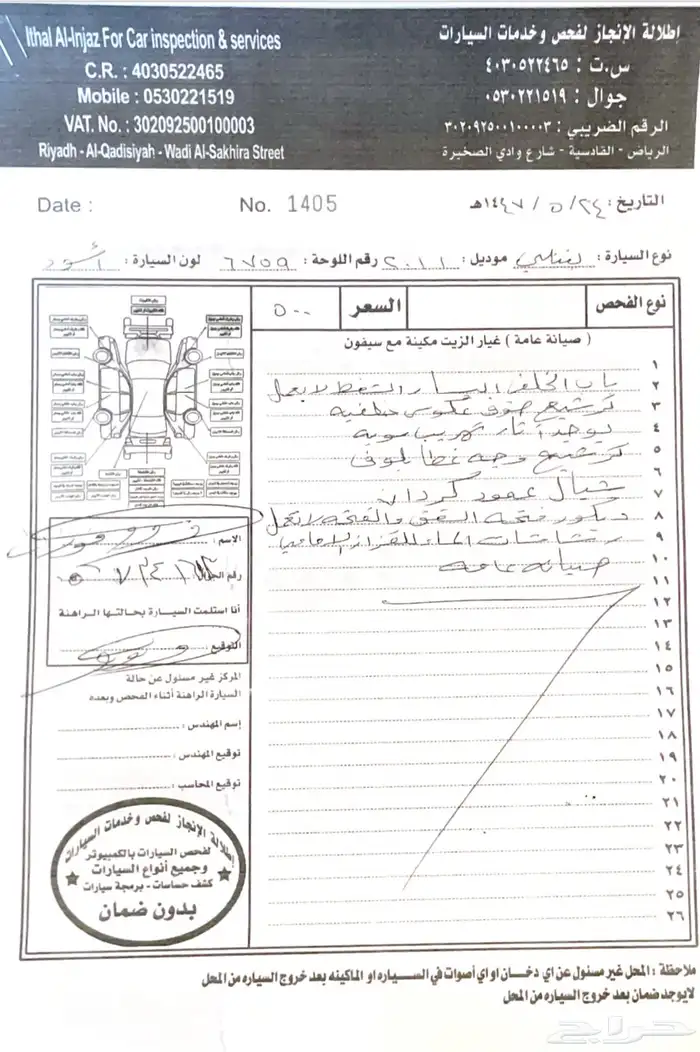 Ithal Al-Injaz For Car inspection & services
C.R. : 4030522465
Mobile : 0530221519
VAT. No. : 302092500100003
Riyadh - Al-Qadisiyah - Wadi Al-Sakhira Street
إطلالة الإنجاز لفحص وخدمات السيارات
س.ت : ٤٠٣٠٥٢٢٤٦٥
جوال : ٠٥٣٠٢٢١٥١٩
الرقم الضريبي : ٣٠٢٠٩٢٥٠٠١٠٠٠٠٣
الرياض - القادسية - شارع وادي الصخيرة
Date :
No. 1405
التاريخ : ٢٤ / ٥ / ١٤٤٧هـ
نوع السيارة : بنتلي موديل : ٢٠١١ رقم اللوحة : ٦٧٥٩ لون السيارة : أسود
نوع الفحص
السعر
٥٠٠
( صيانة عامة ) غيار الزيت مكينة مع سيفون
١
٢ باب الخلفي اليسار الشفط لا يعمل
٣ ترشيح صوف عكوس خلفية
٤ يوجد آثار تهريب سوية
٥ ترشيح وجه غطا بلوف
٦
٧ شيال عمود كردان
٨ ديكور فتحة السقف والفتحة لا تعمل
٩ رشاشات الماء للقزاز الامامي
١٠ صيانة عامة
١١
١٢
١٣
١٤
١٥
١٦
١٧
١٨
١٩
٢٠
٢١
٢٢
٢٣
٢٤
٢٥
٢٦
الاسم :
رقم الجوال
أنا استلمت السيارة بحالتها الراهنة
التوقيع
المركز غير مسئول عن حالة
السيارة الراهنة أثناء الفحص وبعده
إسم المهندس :
توقيع المهندس :
توقيع المحاسب :
إطلالة الإنجاز لفحص وخدمات السيارات
لفحص السيارات بالكمبيوتر
وجميع أنواع السيارات
كشف حساسات - برمجة سيارات
بدون ضمان
ملاحظة : المحل غير مسئول عن اي دخان او اي أصوات في السياره او الماكينه بعد خروج السياره من المحل
لايوجد ضمان بعد خروج السياره من المحل
حراج